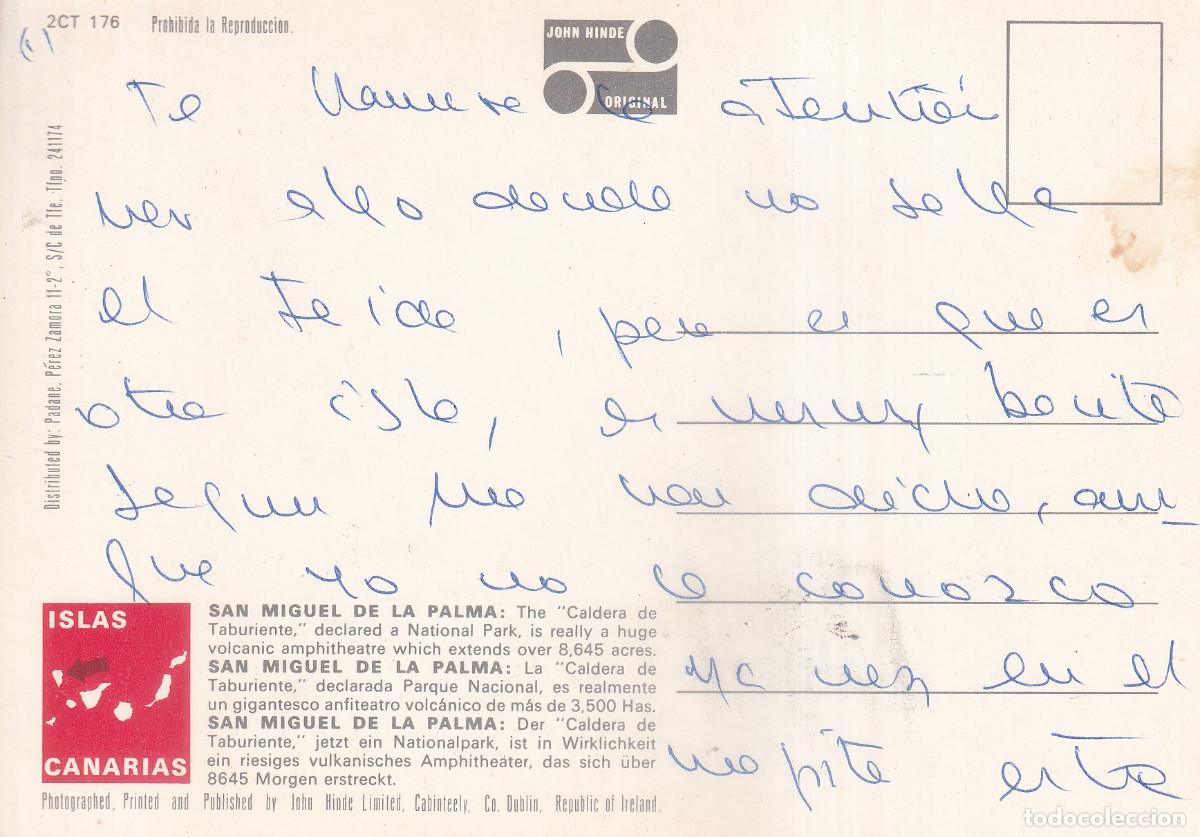 2CT 176
Prohibida la Reproduccion.
JOHN HINDE
ORIGINAL
(1)
Te llamara la atención
ver esto donde no se ve
el Teide, pero es que es
otra isla, es muy bonita
según me han dicho, aun_
que yo no la conozco
ya ves en el
mapita esta
Distributed by: Padane, Pérez Zamora 11-2°, S/C de Tfe. Tfno. 241174
ISLAS
CANARIAS
SAN MIGUEL DE LA PALMA: The "Caldera de
Taburiente," declared a National Park, is really a huge
volcanic amphitheatre which extends over 8,645 acres.
SAN MIGUEL DE LA PALMA: La "Caldera de
Taburiente," declarada Parque Nacional, es realmente
un gigantesco anfiteatro volcánico de más de 3,500 Has.
SAN MIGUEL DE LA PALMA: Der "Caldera de
Taburiente," jetzt ein Nationalpark, ist in Wirklichkeit
ein riesiges vulkanisches Amphitheäter, das sich über
8645 Morgen erstreckt.
Photographed, Printed and Published by John Hinde Limited, Cabinteely, Co. Dublin, Republic of Ireland.
todocoleccion